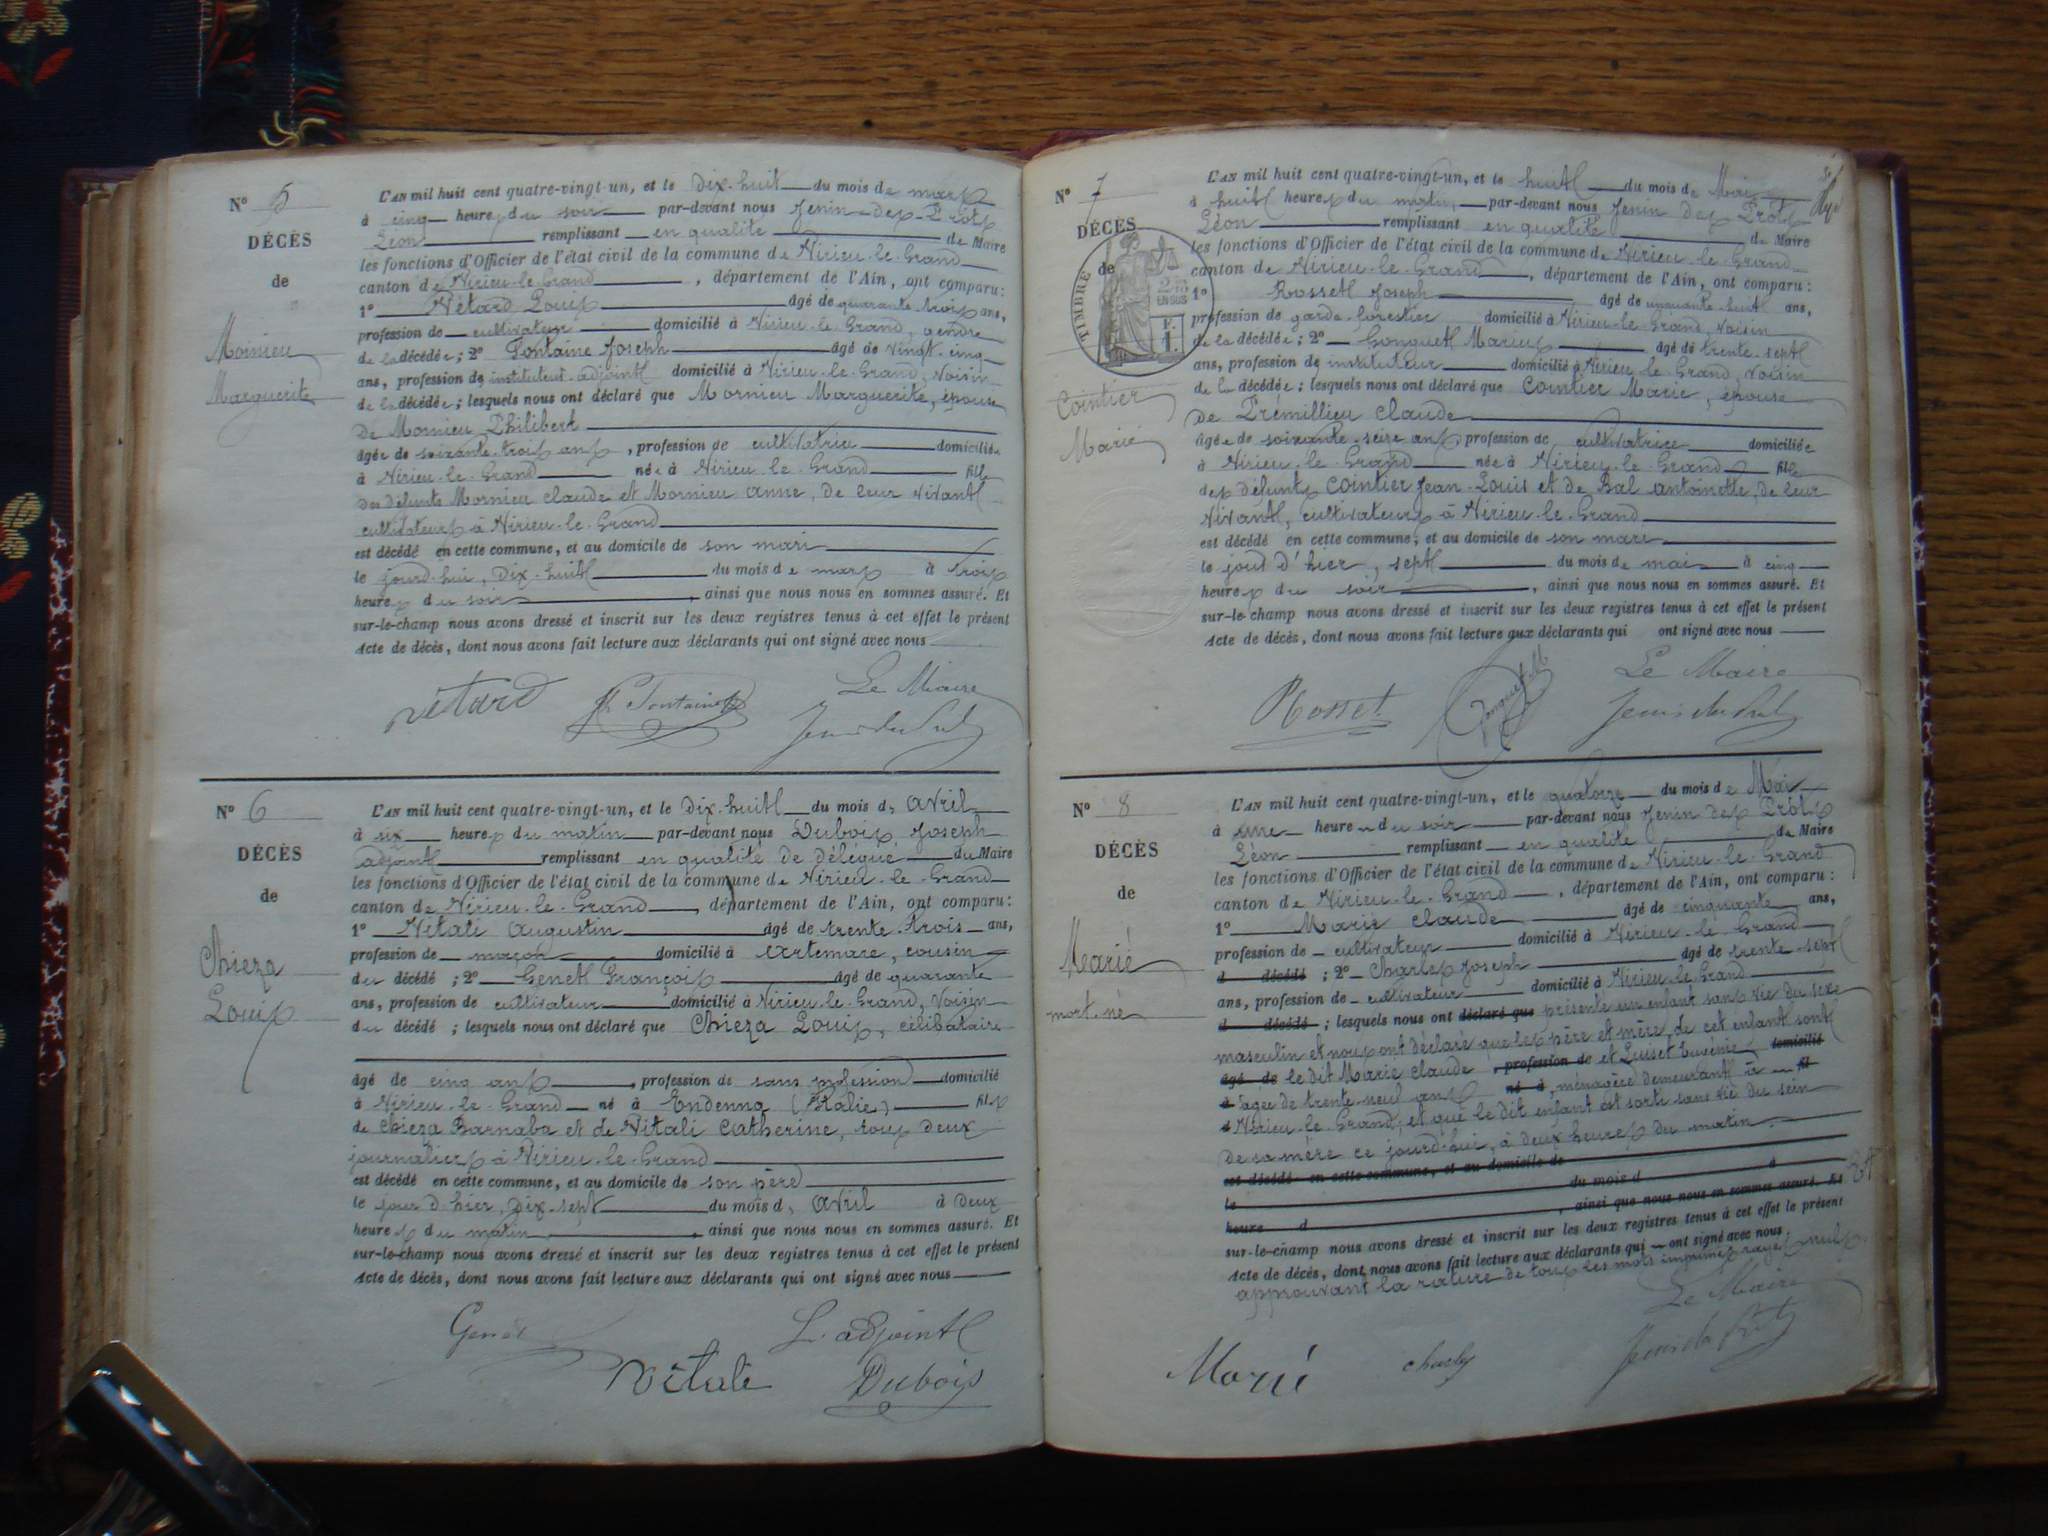 N° 5
DÉCÈS
de
Moinieu
Marguerite
L'AN mil huit cent quatre-vingt-un, et le Dix-huit du mois de mars
à cinq heures du soir par-devant nous Jenin des Prots
Léon remplissant en qualité de Maire
les fonctions d'Officier de l'état civil de la commune de Virieu-le-Grand
canton de Virieu-le-Grand, département de l'Ain, ont comparu:
1° Vétard Louis âgé de quarante trois ans,
profession de cultivateur domicilié à Virieu-le-Grand, gendre
de la décédée; 2° Fontaine Joseph âgé de vingt-cinq
ans, profession de instituteur-adjoint domicilié à Virieu-le-Grand, voisin
de la décédée; lesquels nous ont déclaré que Mornieu Marguerite, épouse
De Mornieu Philibert
âgée de soixante-trois ans, profession de cultivatrice domiciliée
à Virieu-le-Grand née à Virieu-le-Grand fille
des défunts Mornieu Claude et Mornieu Anne, de leur vivant
cultivateurs à Virieu-le-Grand
est décédé en cette commune, et au domicile de son mari
le jourd'hui, Dix-huit du mois de mars à trois
heures du soir, ainsi que nous nous en sommes assuré. Et
sur-le-champ nous avons dressé et inscrit sur les deux registres tenus à cet effet le présent
Acte de décès, dont nous avons fait lecture aux déclarants qui ont signé avec nous
vétard Jh Fontaine Le Maire
Jenin des Prots
N° 6
DÉCÈS
de
Chieza
Louis
L'AN mil huit cent quatre-vingt-un, et le Dix-huit du mois d'Avril
à six heures du matin par-devant nous Dubois Joseph
adjoint remplissant en qualité de délégué du Maire
les fonctions d'Officier de l'état civil de la commune de Virieu-le-Grand
canton de Virieu-le-Grand, département de l'Ain, ont comparu:
1° Vitali Augustin âgé de trente trois ans,
profession de maçon domicilié à Artemare, cousin
du décédé; 2° Genet François âgé de quarante
ans, profession de cultivateur domicilié à Virieu-le-Grand, voisin
du décédé; lesquels nous ont déclaré que Chieza Louis, célibataire
âgé de cinq ans, profession de sans profession domicilié
à Virieu-le-Grand né à Endenna (Italie) fils
de Chieza Barnaba et de Vitali Catherine, tous deux
journaliers à Virieu-le-Grand
est décédé en cette commune, et au domicile de son père
le jour d'hier, Dix-sept du mois d'Avril à Deux
heures du matin, ainsi que nous nous en sommes assuré. Et
sur-le-champ nous avons dressé et inscrit sur les deux registres tenus à cet effet le présent
Acte de décès, dont nous avons fait lecture aux déclarants qui ont signé avec nous
Genet L'adjoint
Vitali Dubois
N° 7
DÉCÈS
de
TIMBRE
2/10
EN SUS
F.
1.
Cointier
Marie
L'AN mil huit cent quatre-vingt-un, et le huit du mois de Mai
à huit heures du matin, par-devant nous Jenin des Prots
Léon remplissant en qualité de Maire
les fonctions d'Officier de l'état civil de la commune de Virieu-le-Grand
canton de Virieu-le-Grand, département de l'Ain, ont comparu:
1° Rosset Joseph âgé de cinquante huit ans,
profession de garde-forestier domicilié à Virieu-le-Grand, voisin
de la décédée; 2° Gonguet Marius âgé de trente-sept
ans, profession de instituteur domicilié à Virieu-le-Grand, voisin
de la décédée; lesquels nous ont déclaré que Cointier Marie, épouse
de Prémillieu Claude
âgée de soixante-seize ans, profession de cultivatrice domiciliée
à Virieu-le-Grand née à Virieu-le-Grand fille
des défunts Cointier Jean-Louis et de Bal Antoinette, de leur
vivant, cultivateurs à Virieu-le-Grand
est décédé en cette commune, et au domicile de son mari
le jour d'hier, sept du mois de mai à cinq
heures du soir, ainsi que nous nous en sommes assuré. Et
sur-le-champ nous avons dressé et inscrit sur les deux registres tenus à cet effet le présent
Acte de décès, dont nous avons fait lecture aux déclarants qui ont signé avec nous
Rosset Gonguet M Le Maire
Jenin des Prots
N° 8
DÉCÈS
de
Marié
mort-né
L'AN mil huit cent quatre-vingt-un, et le quatorze du mois de Mai
à une heure du soir par-devant nous Jenin des Prots
Léon remplissant en qualité de Maire
les fonctions d'Officier de l'état civil de la commune de Virieu-le-Grand
canton de Virieu-le-Grand, département de l'Ain, ont comparu:
1° Marié Claude âgé de cinquante ans,
profession de cultivateur domicilié à Virieu-le-Grand
d décédé; 2° Charles Joseph âgé de trente sept
ans, profession de cultivateur domicilié à Virieu-le-Grand
d décédé; lesquels nous ont déclaré que présenté un enfant sans vie du sexe
masculin et nous ont déclaré que les père et mère de cet enfant sont
âgé de le dit Marié Claude, profession de et Luiset Eugénie domicilié
à âgée de trente-neuf ans né à, ménagère demeurant à fil
d Virieu-le-Grand, et que le dit enfant est sorti sans vie du sein
de sa mère ce jourd'hui, à deux heures du matin.
est décédé en cette commune, et au domicile de
le du mois d à
heure d, ainsi que nous nous en sommes assuré. Et
sur-le-champ nous avons dressé et inscrit sur les deux registres tenus à cet effet le présent
Acte de décès, dont nous avons fait lecture aux déclarants qui ont signé avec nous,
approuvant la rature de tous les mots imprimés rayés nuls.
Le Maire
Marié Charles Jenin des Prots